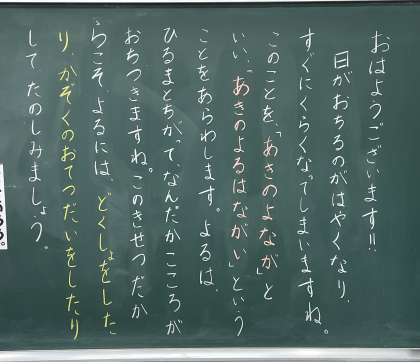 おはようございます!!
日がおちるのがはやくなり、
すぐにくらくなってしまいますね。
このことを、「あきのよなが」と
いい、「あきのよるはながい」という
ことをあらわします。よるは、
ひるまとちがって、なんだかこころが
おちつきますね。このきせつだか
らこそ、よるには、どくしょをした
り、かぞくのおてつだいをしたり
してたのしみましょう。